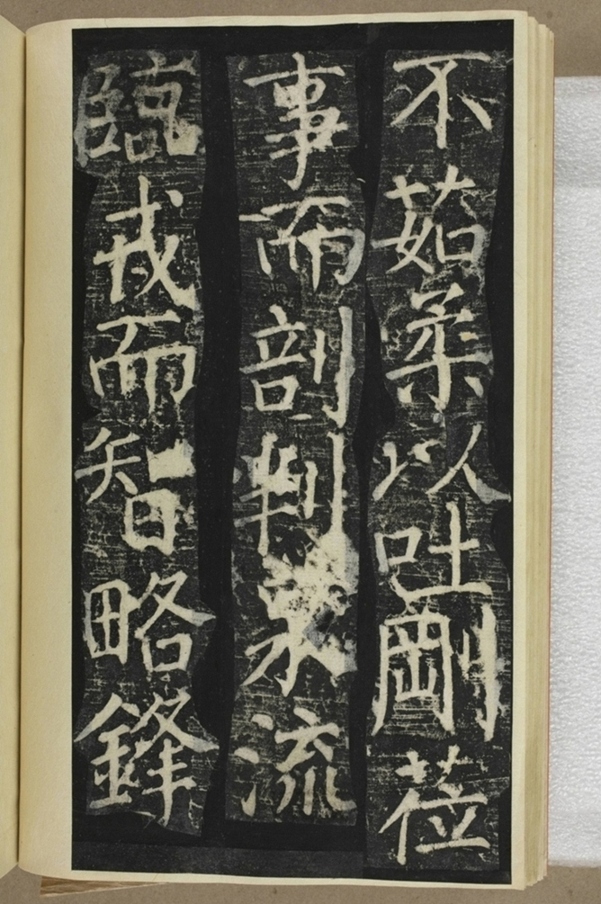 不茹柔以吐剛莅
事而剖判泉流
臨戎而智略鋒